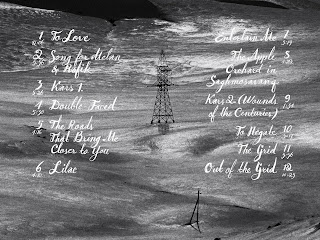 1 To Love
2 Song for Melan
& Rafik
3 Kars 1
4 Double Faced
5 The Roads
That Bring Me
Closer to You
6 Lilac
Entertain Me 7
The Apple 8
Orchard in
Saghmosavanq
Kars 2 (Wounds 9
of the Centuries)
To Negate 10
The Grid 11
Out of the Grid 12